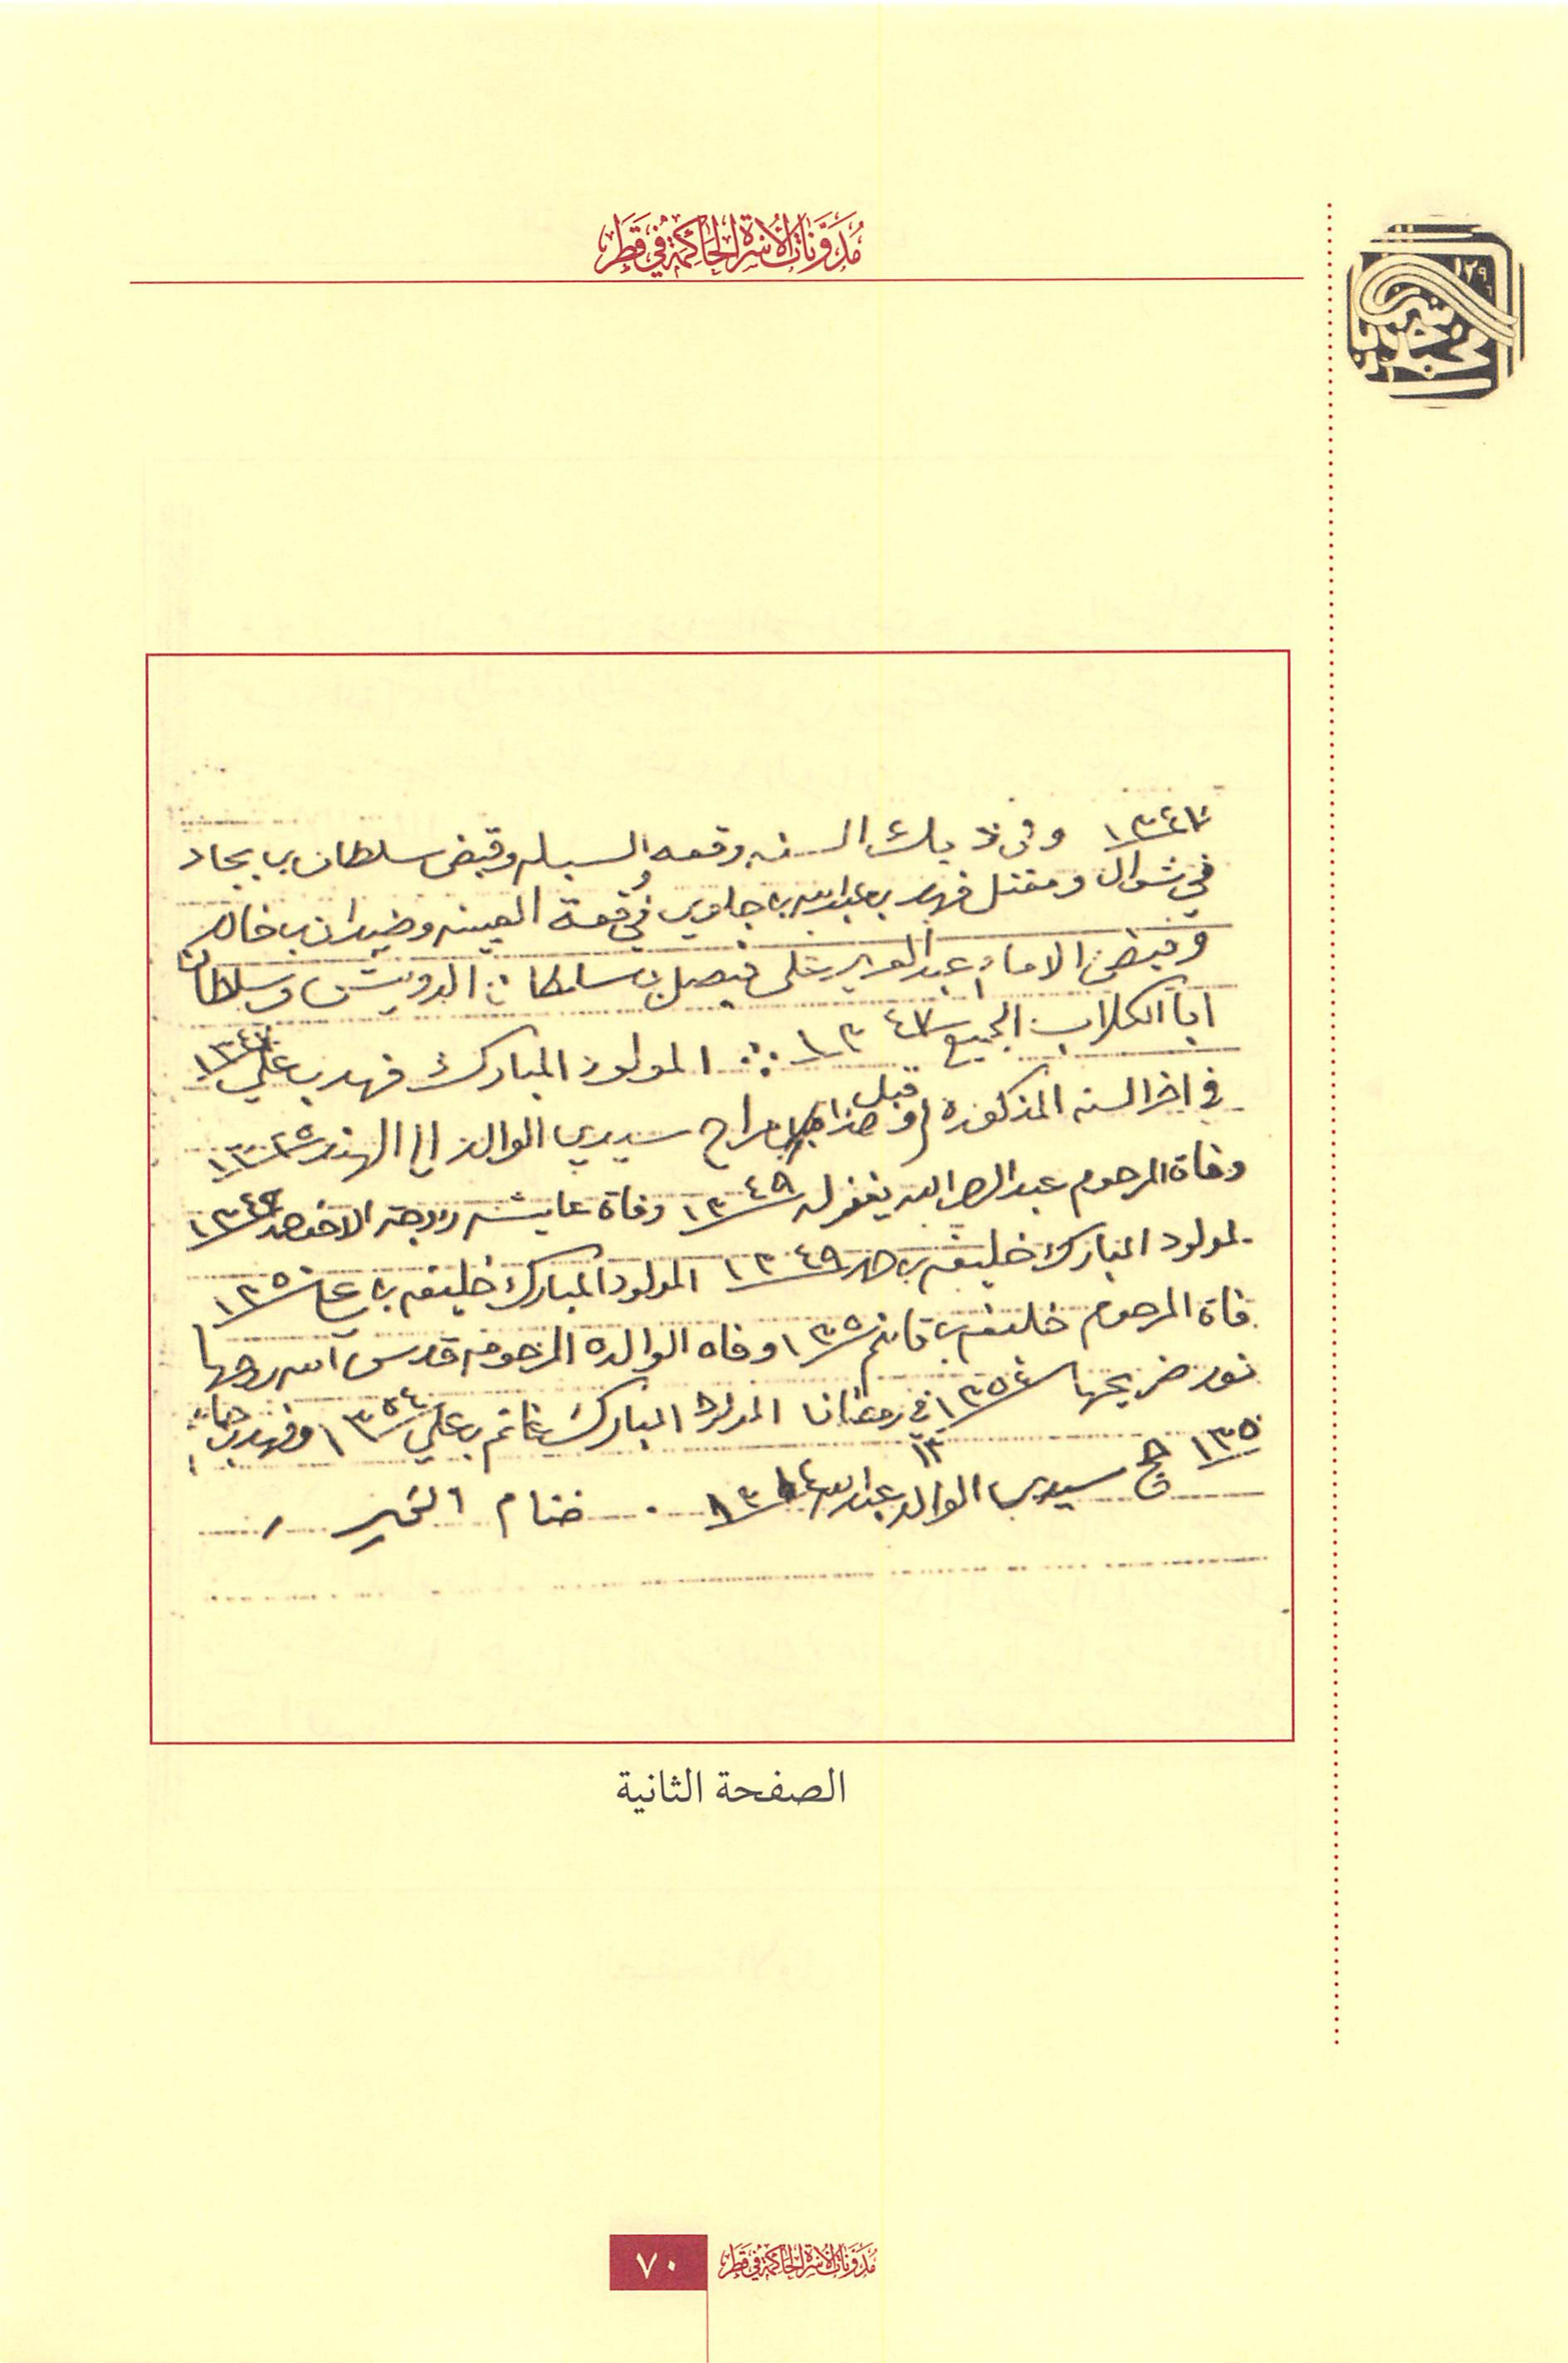 مُدَوَّنَاتُ الأُسْرَةِ الحَاكِمَةِ فِي قَطَر
١٣٤٧ وفي ذيك السنه وقعه السبله وقبض سلطان بن بجاد
في شوال ومقتل فهد بن عبدالله بن جلوي في وقعة العينه وضيدان بن خالد
وقبض الامام عبدالعزيز على فيصل بن سلطان الدويش وسلطان
ابا الكلاب الجميع ١٣٤٧ المولود المبارك فهد بن علي ١٣٤٧
في اخر السنه المذكوره وقبل هذا راح سيدي الوالد الى الهند ١٣٤٥
وفاة المرحوم عبدالله يغفر له ١٣٤٩ وفاة عايشه زوجة الاخ حمد ١٣٤٩
لمولود المبارك خليفه بن حمد ١٣٤٩ المولود المبارك خليفه بن علي ١٣٥٠
فاة المرحوم خليفه بن قاسم ١٣٥٠ وفاه الوالده المرحومه قدس الله روحها
نور ضريحها ١٣٥٤ في رمضان المولود المبارك غانم بن علي ١٣٥٤ وفهد بن
١٣٥٠ حج سيدي الوالد عبدالله ختام الخير
الصفحة الثانية
٧٠ مُدَوَّنَاتُ الأُسْرَةِ الحَاكِمَةِ فِي قَطَر